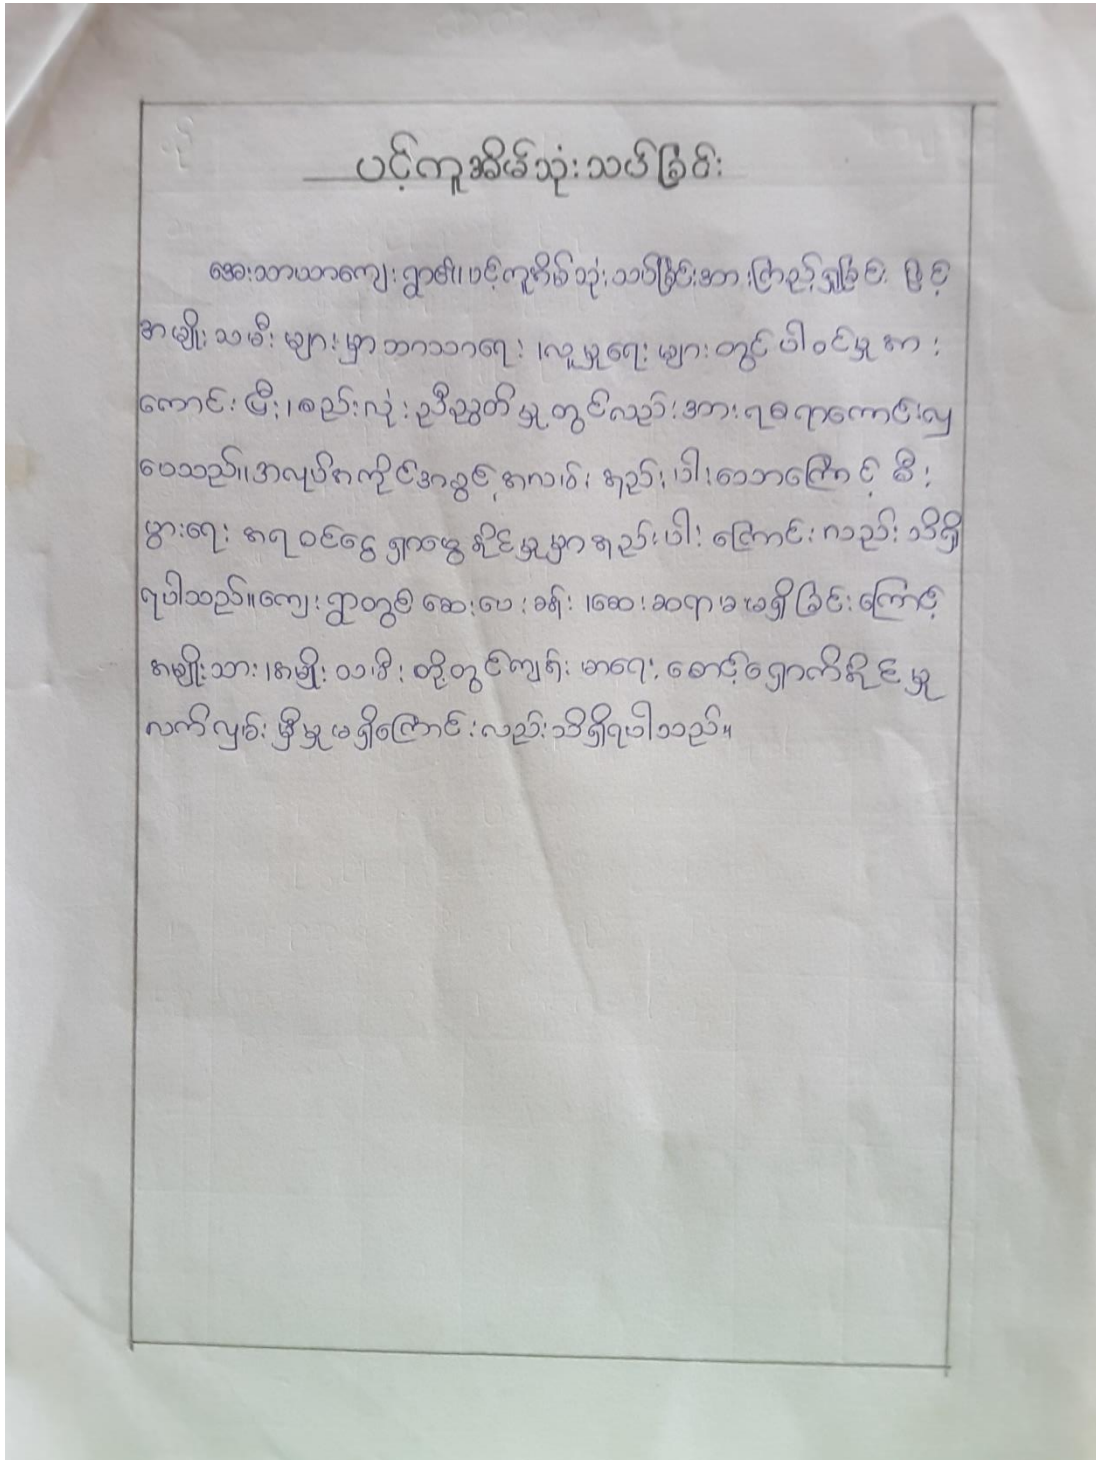 ပင့်ကူအိမ်သုံးသပ်ခြင်း
အေးသာယာကျေးရွာ၏ပင့်ကူအိမ်သုံးသပ်ခြင်းအားကြည့်ရှုခြင်းဖြင့်
အမျိုးသမီးများမှာဘာသာရေး၊လူမှုရေးများတွင်ပါဝင်မှုအား
ကောင်းပြီး၊စည်းလုံးညီညွတ်မှုတွင်လည်းအားရစရာကောင်းလှ
ပေသည်။အလုပ်အကိုင်အခွင့်အလမ်းနည်းပါးသောကြောင့်စီး
ပွားရေးအရဝင်ငွေရှာဖွေနိုင်မှုမှာနည်းပါးကြောင်းလည်းသိရှိ
ရပါသည်။ကျေးရွာတွင်ဆေးပေးခန်း၊ဆေးဆရာမ မရှိခြင်းကြောင့်
အမျိုးသား၊အမျိုးသမီးတို့တွင်ကျန်းမာရေးစောင့်ရှောက်နိုင်မှု
လက်လှမ်းမှီမှုမရှိကြောင်းလည်းသိရှိရပါသည်။